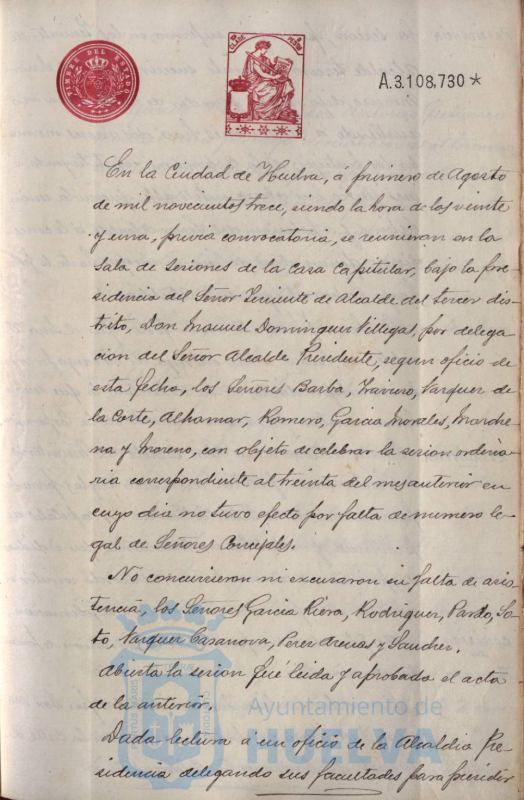 TIMBRE DEL ESTADO
A.3.108,730*
En la Ciudad de Huelva, á primero de Agosto
de mil novecientos trece, siendo la hora de las veinte
y una, previa convocatoria, se reunieron en la
Sala de Sesiones de la Casa Capitular, bajo la pre-
sidencia del Señor Teniente de Alcalde del tercer dis-
trito, Don Manuel Dominguez Villegas, por delega-
cion del Señor Alcalde Presidente, segun oficio de
esta fecha, los Señores Barba, Vazquez de
la Corte, Alhamar, Romero, Garcia Morales, Marche-
na y Moreno, con objeto de celebrar la sesion ordina-
ria correspondiente al treinta del mes anterior en
cuyo dia no tuvo efecto por falta de numero le-
gal de Señores Concejales.
No concurrieron ni excusaron su falta de asis-
tencia, los Señores Garcia Riera, Rodriguez, Pardo, So-
to, Vazquez Casanova, Perez Arenas y Sanchez.
Abierta la sesion fué leida y aprobada el acta
de la anterior.
Dada lectura á un oficio de la Alcaldia Pre-
sidencia delegando sus facultades para presidir
Ayuntamiento de
HUELVA